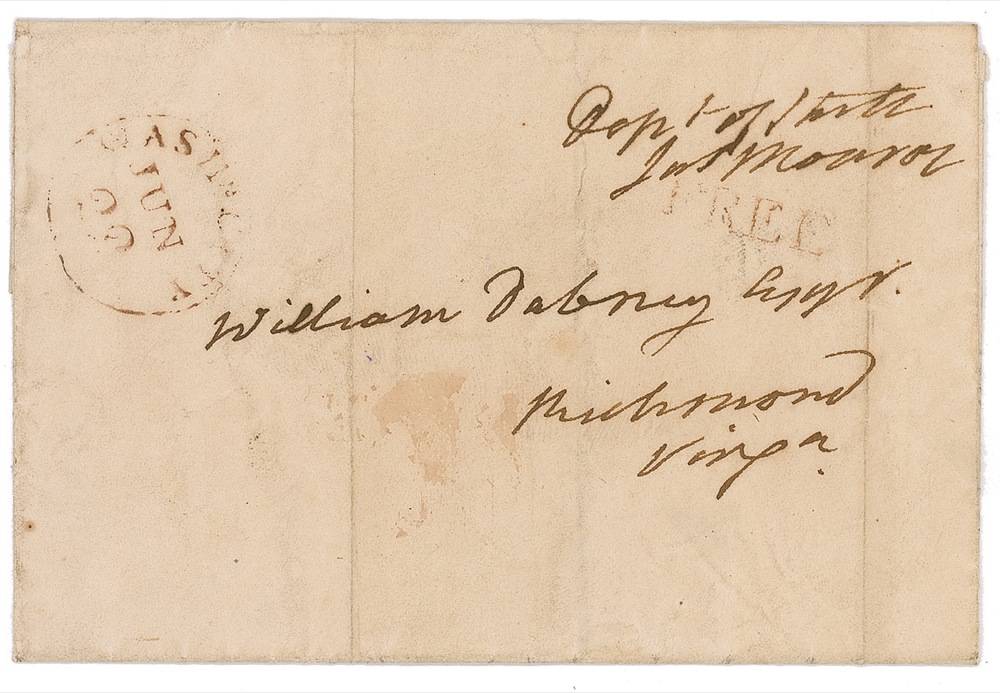 Dept of State
Jas Monroe
FREE
WASHI
JUN
William Dabney Esqr.
Richmond
Virga